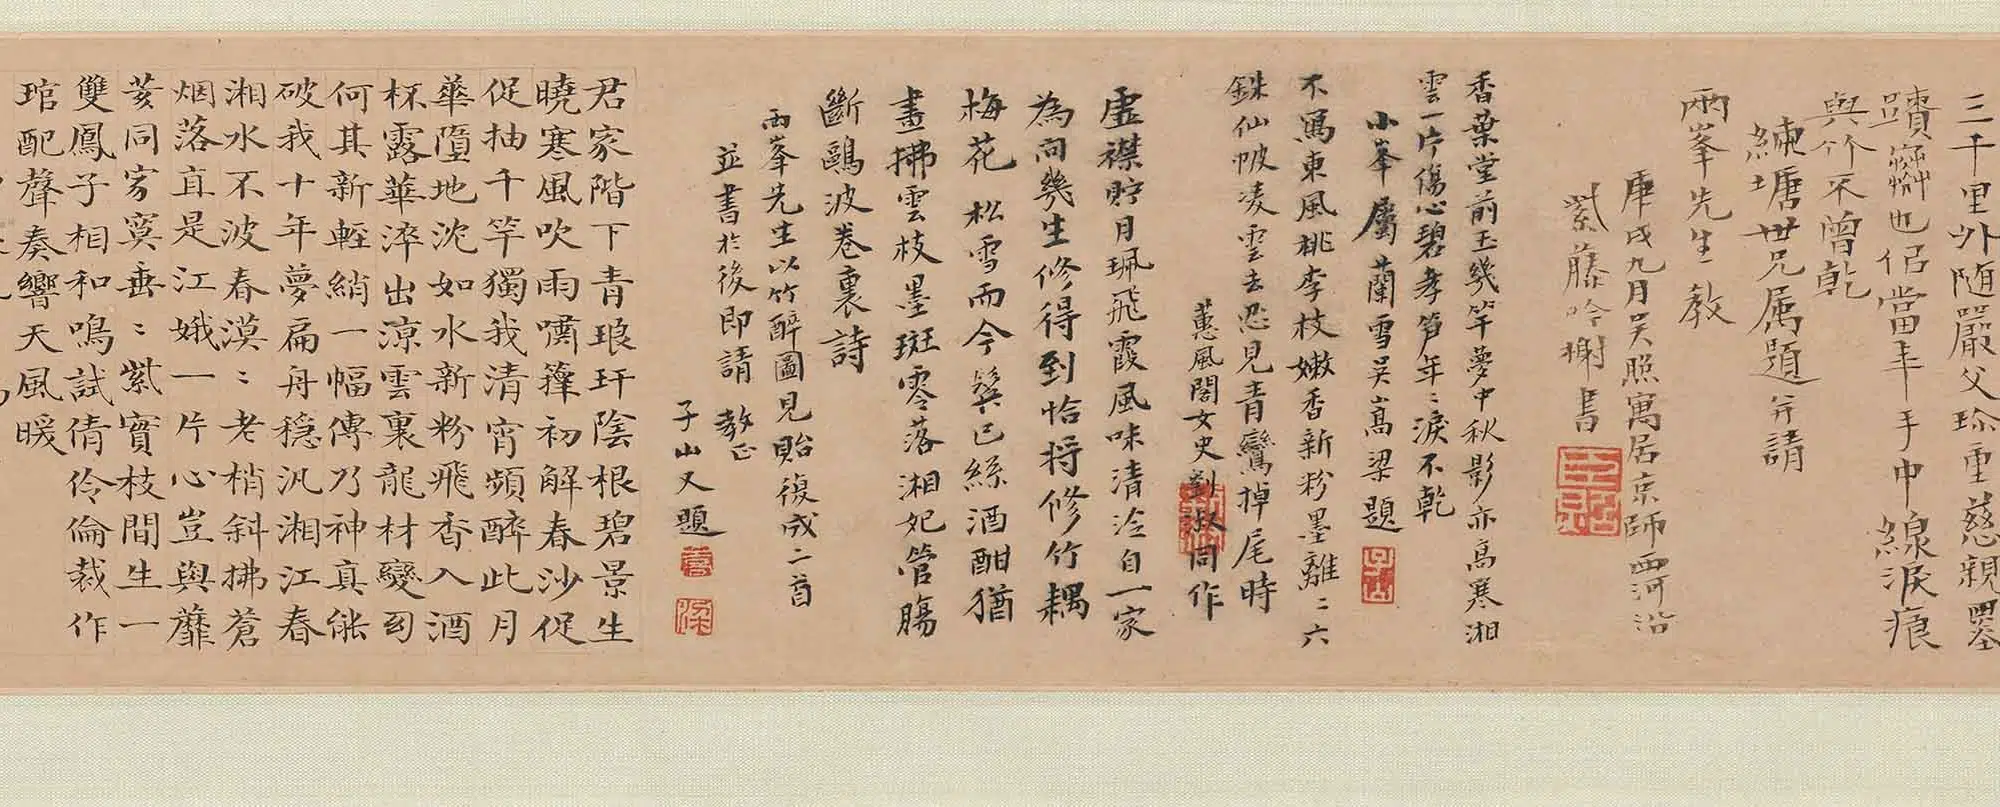 三千里外隨嚴父珍重慈親墨
蹟
也侶當年手中線淚痕
與竹不曾乾
練塘世兄属題并請
兩峯先生教
庚戌九月吴照寓居京師西河沿
紫藤吟榭書
香葉堂前玉幾竿夢中秋影亦高寒湘
雲一片傷心碧孝笋年〻淚不乾
小峯屬蘭雪吴嵩梁題
不寫東風桃李枝嫩香新粉墨離〻六
銖仙帔凌雲去忍見青鸞掉尾時
蕙風閣女史劉淑同作
虚襟貯月珮飛霞風味清泠自一家
為问幾生修得到恰将修竹耦
梅花 松雪而今鬓已絲酒酣猶
畫拂雲枝墨斑零落湘妃管腸
斷鷗波卷裏詩
兩峯先生以竹醉圖見貽復成二首
並書於後即請 教正
子山又題
君家階下青琅玕陰根碧景生
曉寒風吹雨嘯籜初解春沙促
促抽千竿獨我清宵頻醉此月
華墮地沈如水新粉飛香入酒
杯露華淬出涼雲裏龍材變幻
何其新輕綃一幅傳乃神真能
破我十年夢扁舟穩汎湘江春
湘水不波春漠〻老梢斜拂蒼
烟落直是江娥一片心豈與蘼
荄同寂寞垂〻紫實枝間生一
雙鳳子相和鳴試倩伶倫裁作
琯配聲奏響天風暖